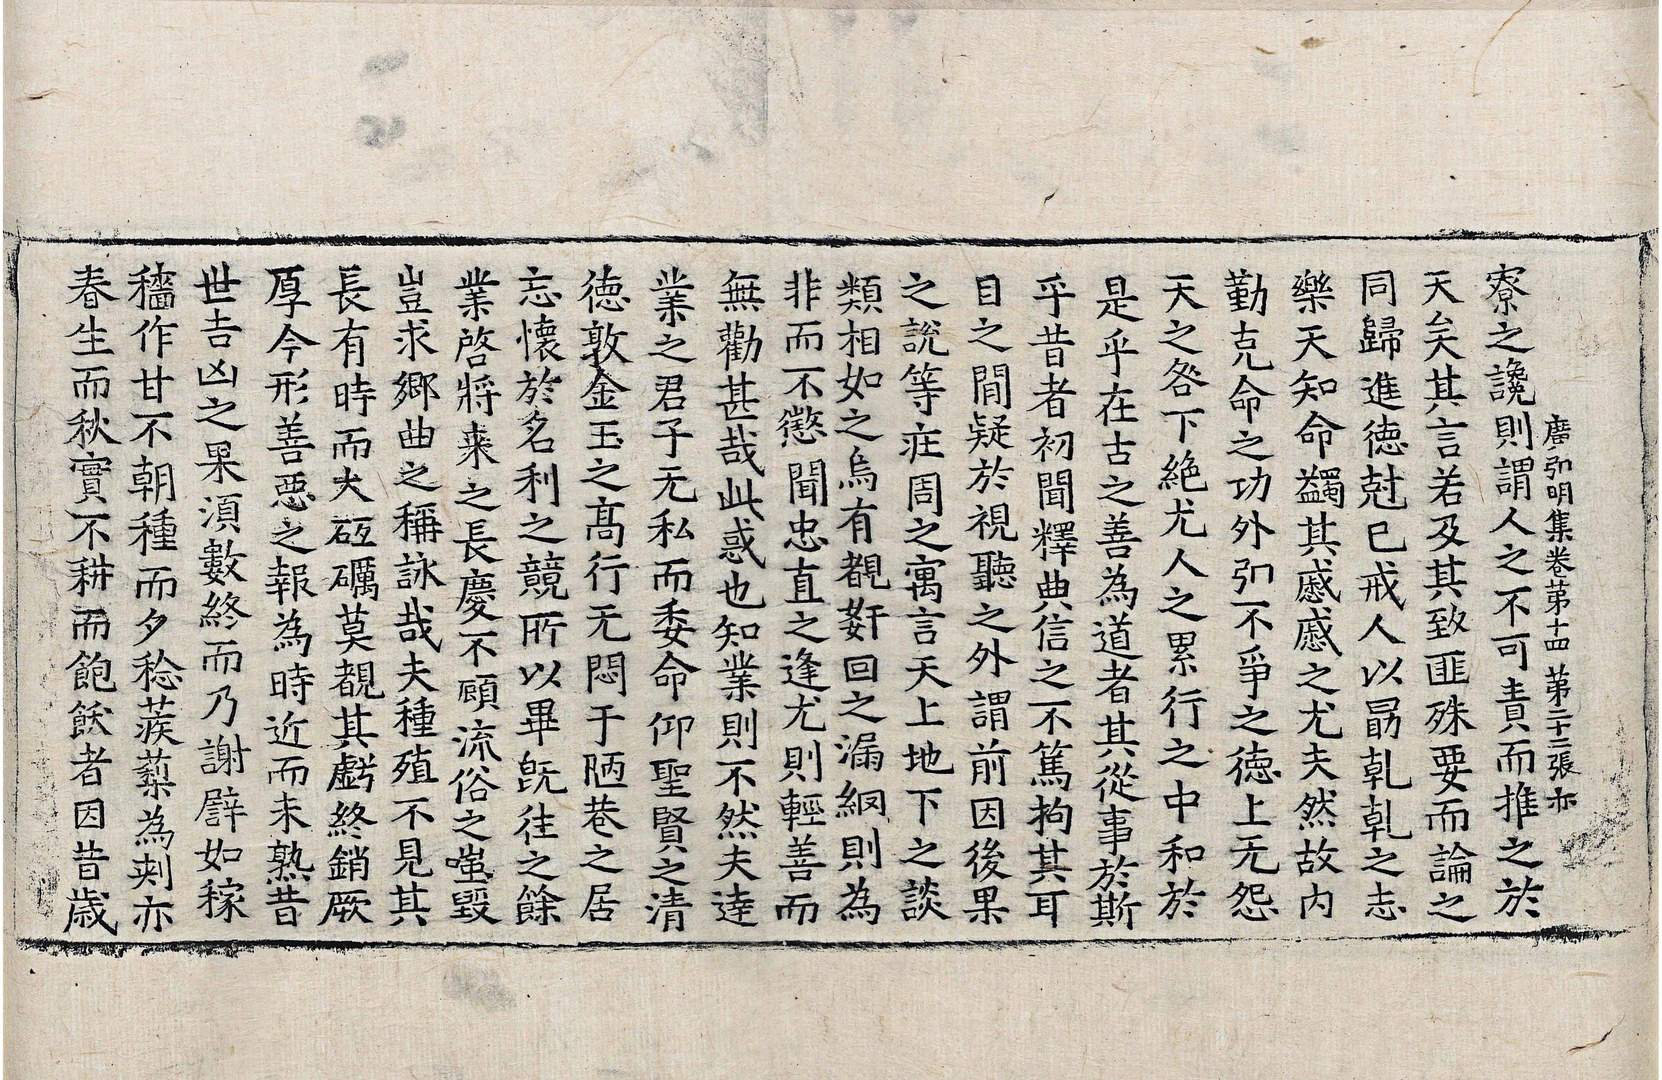 廣弘明集卷第十四 第二十二張 亦
寮之讒則謂人之不可責而推之於
天矣其言若及其致匪殊要而論之
同歸進徳尅已戒人以勗乹乹之志
樂天知命蠲其慼慼之尤夫然故内
勤克命之功外弘不爭之徳上无怨
天之咎下絶尤人之累行之中和於
是乎在古之善為道者其從事於斯
乎昔者初聞釋典信之不篤拘其耳
目之間疑於視聽之外謂前因後果
之說等莊周之寓言天上地下之談
類相如之烏有覩姧回之漏網則為
非而不懲聞忠直之逢尤則輕善而
無勸甚哉此惑也知業則不然夫達
業之君子无私而委命仰聖賢之清
徳敦金玉之髙行无悶于陋巷之居
忘懷於名利之競所以畢旣往之餘
業啓將来之長慶不顧流俗之嗤毀
豈求鄉曲之稱詠哉夫種殖不見其
長有時而大砥礪莫覩其虧終銷厥
厚今形善惡之報為時近而未熟昔
世吉凶之果須數終而乃謝譬如稼
穡作甘不朝種而夕稔蒺蔾為刺亦
春生而秋實不耕而飽飫者因昔歲